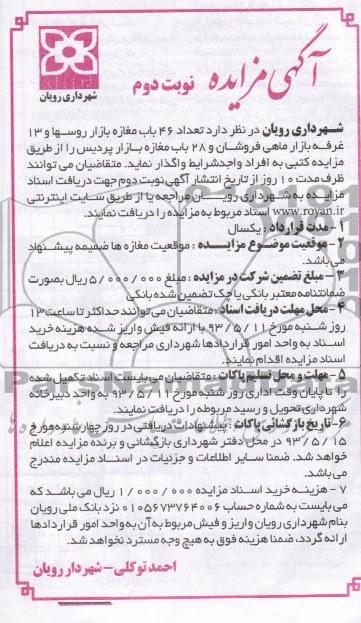 آگهی مزایده نوبت دوم
شهرداری رویان
شهرداری رویان در نظر دارد تعداد ۴۶ باب مغازه بازار روسها و ۱۳
غرفه بازار ماهی فروشان و ۲۸ باب مغازه بازار پردیس را از طریق
مزایده کتبی به افراد واجد شرایط واگذار نماید. متقاضیان می توانند
ظرف مدت ۱۰ روز از تاریخ انتشار آگهی نوبت دوم جهت دریافت اسناد
مزایده به شهرداری رویان مراجعه یا از طریق سایت اینترنتی
www.royan.ir اسناد مربوط به مزایده را دریافت نمایند.
۱- مدت قرارداد : یکسال
۲- موقعیت موضوع مزایده : موقعیت مغازه ها ضمیمه پیشنهاد
می باشد.
۳- مبلغ تضمین شرکت در مزایده : مبلغ ۵/۰۰۰/۰۰۰ ریال بصورت
ضمانتنامه معتبر بانکی یا چک تضمین شده بانکی
۴- محل مهلت دریافت اسناد : متقاضیان می توانند حداکثر تا ساعت ۱۳
روز شنبه مورخ ۹۳/۵/۱۱ با ارائه فیش واریز شده هزینه خرید
اسناد به واحد امور قراردادها شهرداری مراجعه و نسبت به دریافت
اسناد مزایده اقدام نمایند.
۵- مهلت و محل تسلیم پاکات : متقاضیان می بایست اسناد تکمیل شده
را تا پایان وقت اداری روز شنبه مورخ ۹۳/۵/۱۱ به واحد دبیرخانه
شهرداری تحویل و رسید مربوطه را دریافت نمایند.
۶- تاریخ بازگشائی پاکات : پیشنهادات دریافتی در روز چهارشنبه مورخ
۹۳/۵/۱۵ در محل دفتر شهرداری بازگشائی و برنده مزایده اعلام
خواهد شد. ضمنا سایر اطلاعات و جزئیات در اسناد مزایده مندرج
می باشد.
۷- هزینه خرید اسناد مزایده ۱/۰۰۰/۰۰۰ ریال می باشد که
می بایست به شماره حساب ۰۱۰۵۶۷۳۷۶۴۰۰۶ نزد بانک ملی رویان
بنام شهرداری رویان واریز و فیش مربوط به آن به واحد امور قراردادها
ارائه گردد، ضمنا هزینه فوق به هیچ وجه مسترد نخواهد شد.
احمد توکلی - شهردار رویان